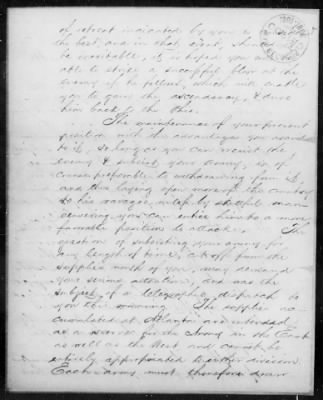 of retreat indicated by you is
the best, and in that event, should
be inevitable, it is hoped you will
able to strike a successful blow at the
enemy if he follows, which will enable
you to gain the ascendancy, & drive
him back to the
The maintenance of your present
position with the advantages you
to it, so long as you can resist the
enemy & subsist your army, is of
course preferable to withdrawing from it,
and thus laying open more of the country
to his ravages, unless by skillful man-
oeuvering you can entice him to a more
favorable position to attack. The
question of subsisting your army for
any length of time, cut off from the
supplies south of you, may demand
your serious attention, and was the
subject of a telegraphic dispatch to
you this morning. The supplies ac-
cumulated at Atlanta are intended
as a reserve for the Army in the East
as well as the West and cannot be
entirely appropriated to either division.
Each army must therefore draw